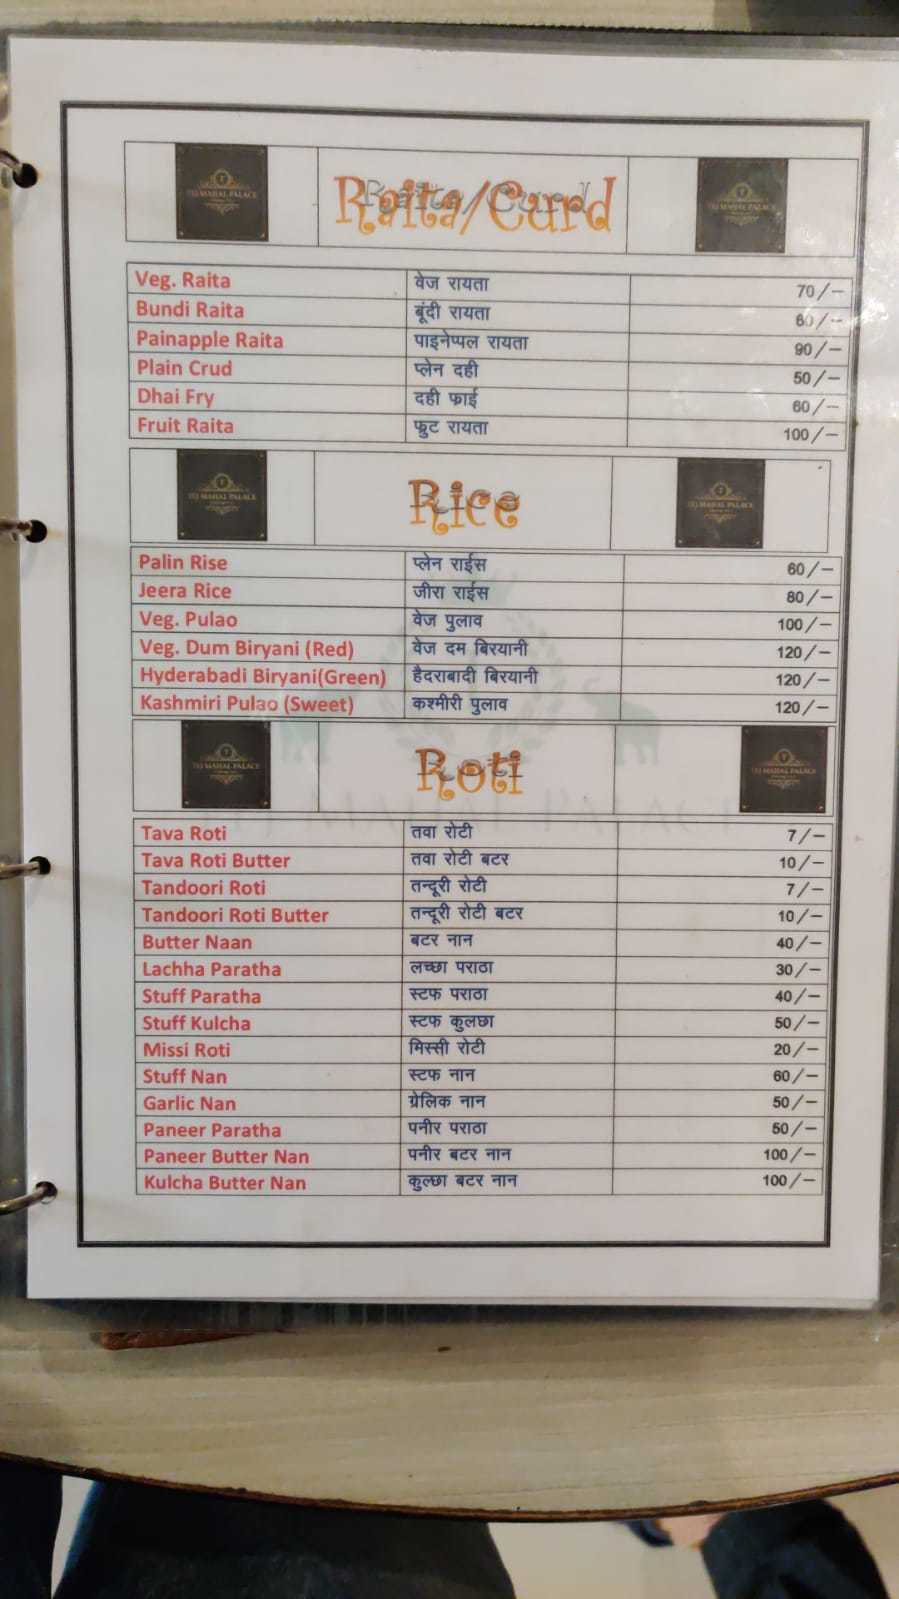 TEJ MAHAL PALACE
Raita/Curd
TEJ MAHAL PALACE
Veg. Raita वेज रायता 70/-
Bundi Raita बूंदी रायता 60/-
Painapple Raita पाइनेप्पल रायता 90/-
Plain Crud प्लेन दही 50/-
Dhai Fry दही फाई 60/-
Fruit Raita फ्रुट रायता 100/-
TEJ MAHAL PALACE
Rice
TEJ MAHAL PALACE
Palin Rise प्लेन राईस 60/-
Jeera Rice जीरा राईस 80/-
Veg. Pulao वेज पुलाव 100/-
Veg. Dum Biryani (Red) वेज दम बिरयानी 120/-
Hyderabadi Biryani(Green) हैदराबादी बिरयानी 120/-
Kashmiri Pulao (Sweet) कश्मीरी पुलाव 120/-
TEJ MAHAL PALACE
Roti
TEJ MAHAL PALACE
TEJ MAHAL PALACE
Tava Roti तवा रोटी 7/-
Tava Roti Butter तवा रोटी बटर 10/-
Tandoori Roti तन्दूरी रोटी 7/-
Tandoori Roti Butter तन्दूरी रोटी बटर 10/-
Butter Naan बटर नान 40/-
Lachha Paratha लच्छा पराठा 30/-
Stuff Paratha स्टफ पराठा 40/-
Stuff Kulcha स्टफ कुलछा 50/-
Missi Roti मिस्सी रोटी 20/-
Stuff Nan स्टफ नान 60/-
Garlic Nan ग्रेलिक नान 50/-
Paneer Paratha पनीर पराठा 50/-
Paneer Butter Nan पनीर बटर नान 100/-
Kulcha Butter Nan कुल्छा बटर नान 100/-